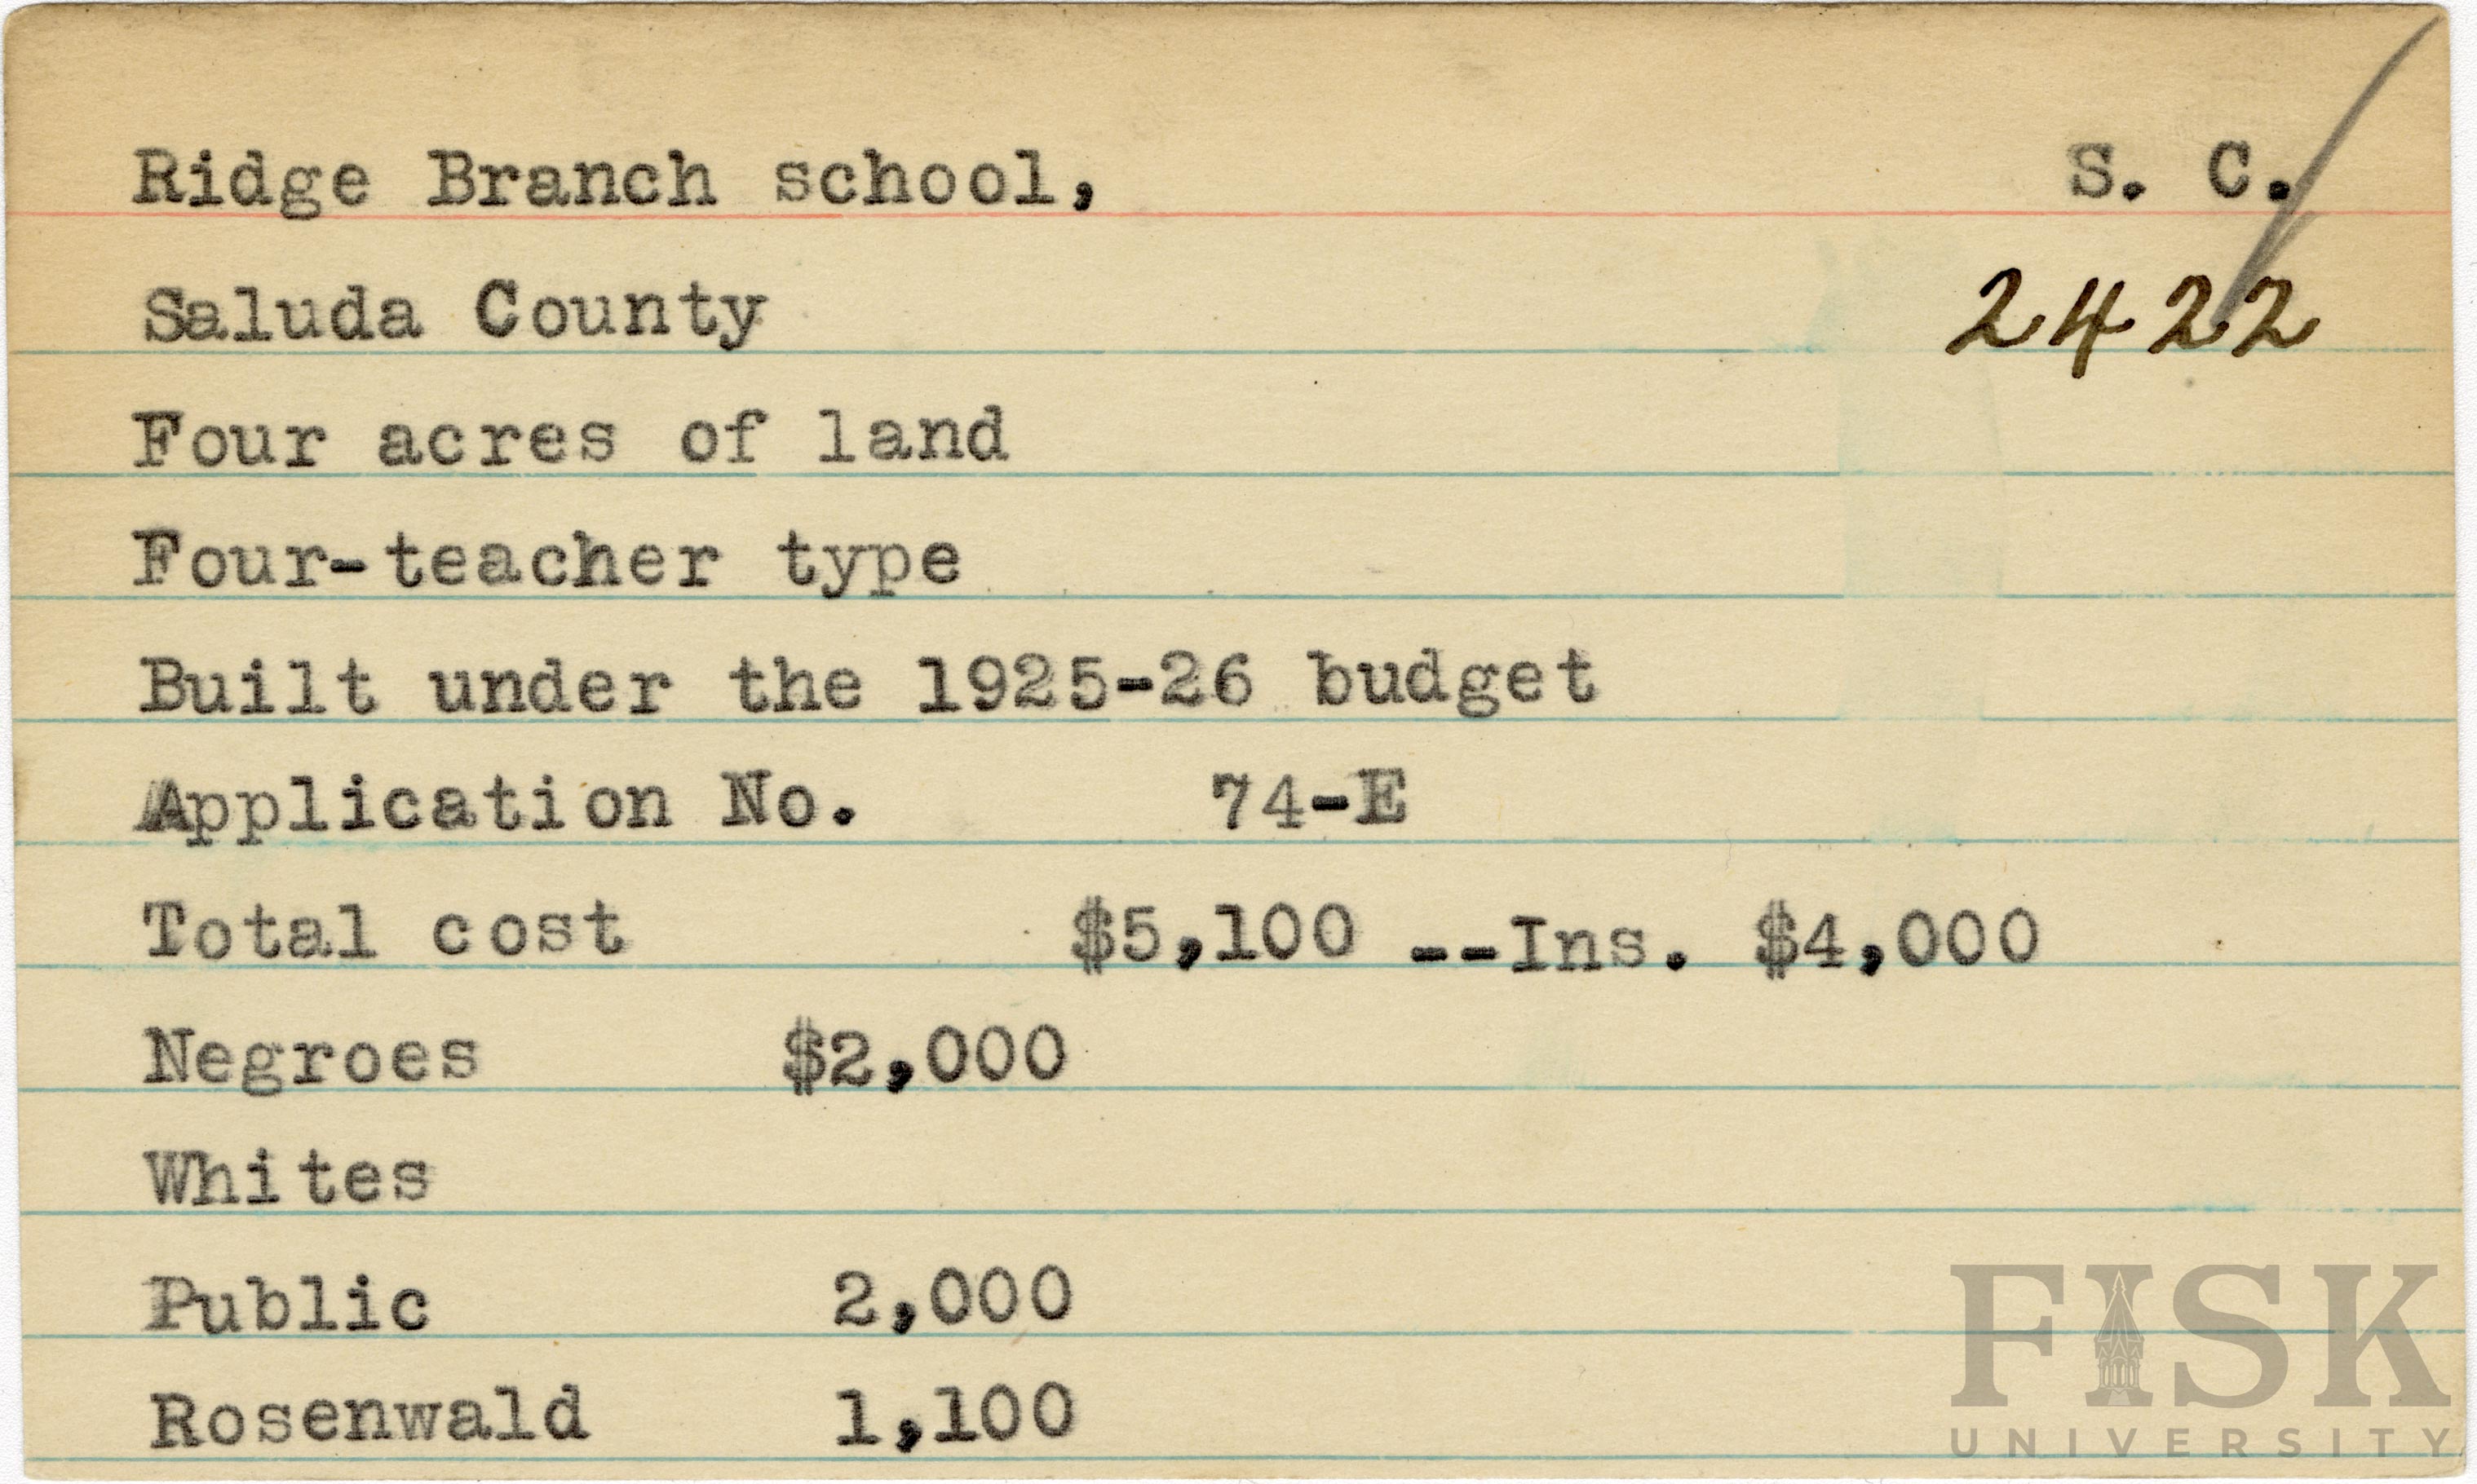 Ridge Branch school, S. C.
2422
Saluda County
Four acres of land
Four-teacher type
Built under the 1925-26 budget
Application No. 74-E
Total cost $5,100 --Ins. $4,000
Negroes $2,000
Whites
Public 2,000
Rosenwald 1,100
FISK
UNIVERSITY